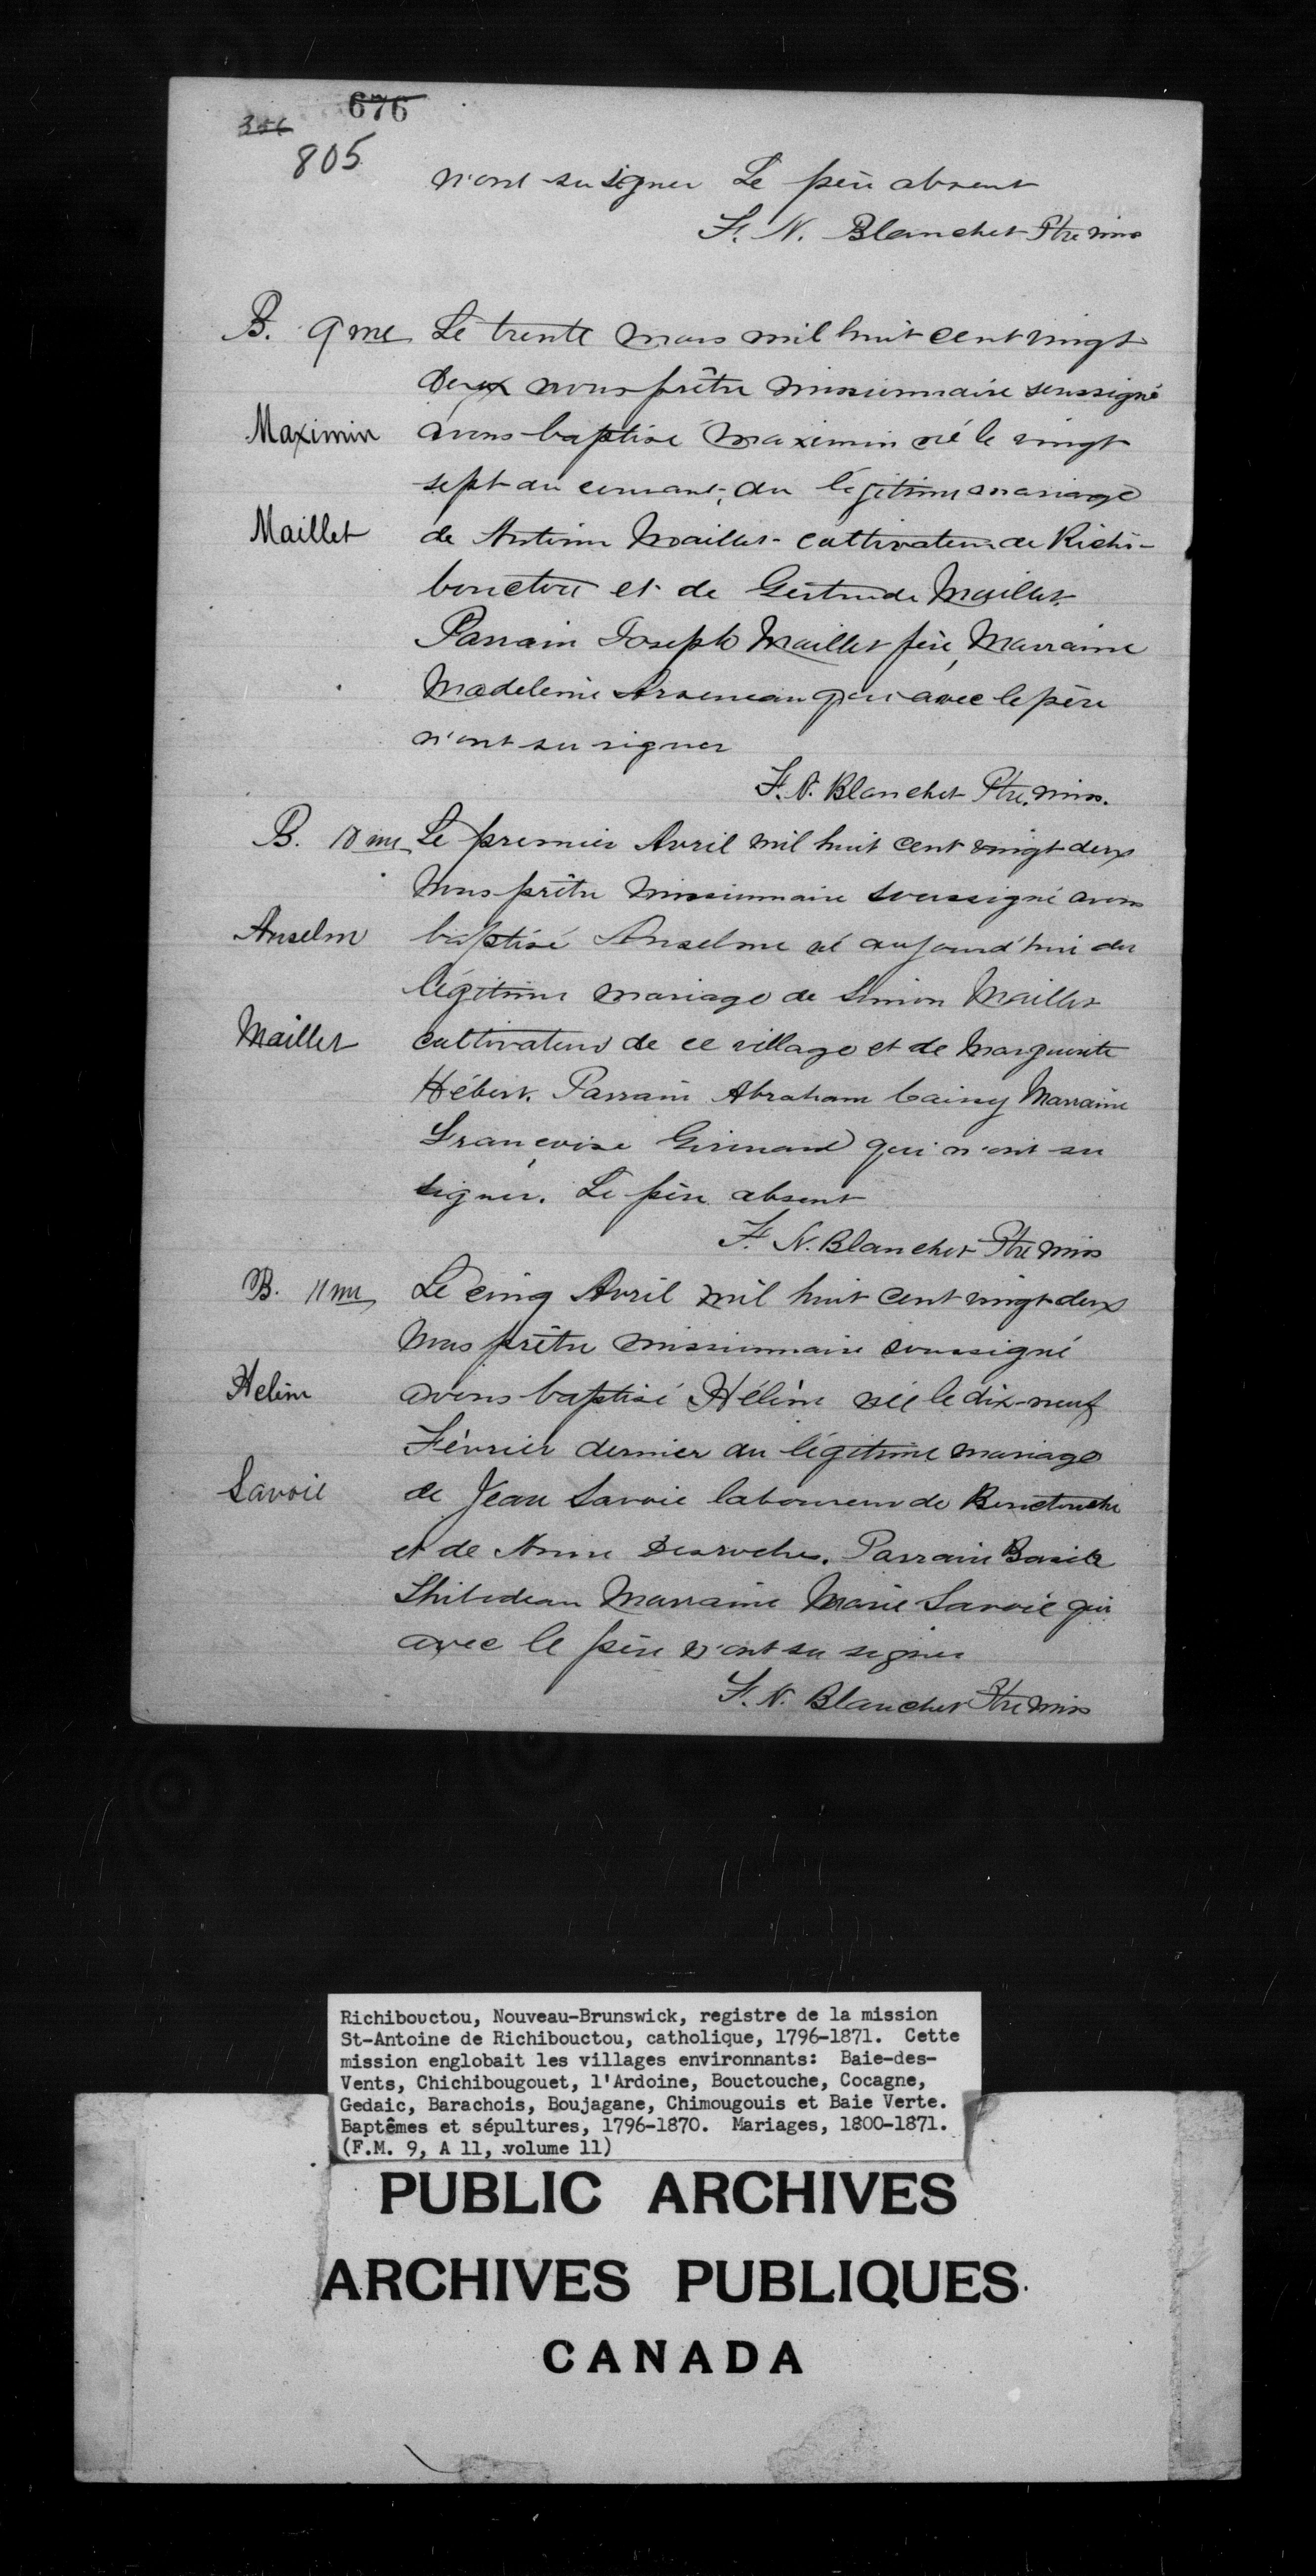 676
805
n'ont su signer Le père absent
F. N. Blanchet Ptre miss
B. 9me Le trente mars mil huit cent vingt
deux nous prêtre missionnaire soussigné
Maximin avons baptisé Maximin né le vingt
sept du courant, du légitime mariage
Maillet de Antime Maillet cultivateur de Richi-
bouctou et de Gertrude Maillet.
Parrain Joseph Maillet père, Marraine
Madeleine Arseneau qui avec le père
n'ont su signer
F. N. Blanchet Ptre. miss.
B. 10me Le premier Avril mil huit cent vingt deux
Nous prêtre missionnaire soussigné avons
Anselm baptisé Anselme né aujourd'hui du
légitime mariage de Simon Maillet
Maillet cultivateur de ce village et de Marguerite
Hébert. Parrain Abraham Caissy Marraine
Françoise Girouard qui n'ont su
signer. Le père absent
F. N. Blanchet Ptre Miss
B. 11me Le cinq Avril mil huit cent vingt deux
Nous prêtre missionnaire soussigné
Helène avons baptisé Hélène née le dix-neuf
Février dernier du légitime mariage
Savoie de Jean Savoie laboureur de Bouctouche
et de Anne Desroches. Parrain Basile
Thibodeau Marraine Marie Savoie qui
avec le père n'ont su signer
F. N. Blanchet Ptre Miss
Richibouctou, Nouveau-Brunswick, registre de la mission
St-Antoine de Richibouctou, catholique, 1796-1871. Cette
mission englobait les villages environnants: Baie-des-
Vents, Chichibougouet, l'Ardoine, Bouctouche, Cocagne,
Gedaic, Barachois, Boujagane, Chimougouis et Baie Verte.
Baptêmes et sépultures, 1796-1870. Mariages, 1800-1871.
(F.M. 9, A 11, volume 11)
PUBLIC ARCHIVES
ARCHIVES PUBLIQUES
CANADA